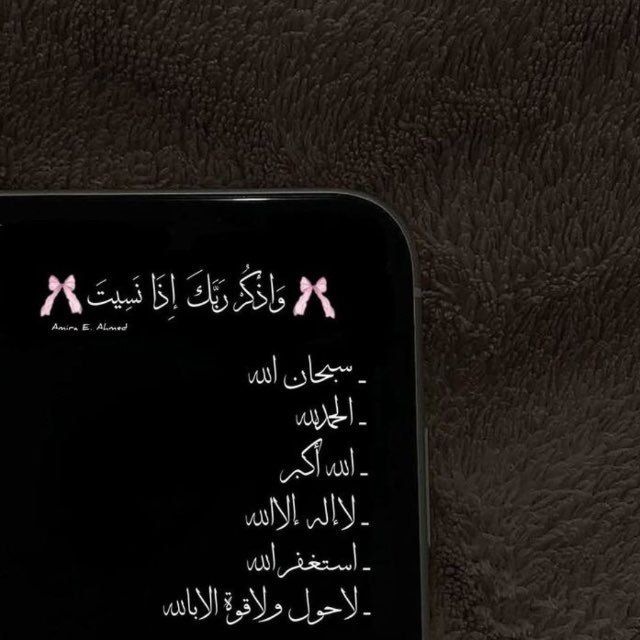 وَاذْكُر رَبَّكَ إِذَا نَسِيتَ
Amira E. Ahmed
ـ سبحان الله
ـ الحمدلله
ـ الله أكبر
ـ لا إله إلا الله
ـ استغفر الله
ـ لاحول ولاقوة الا بالله